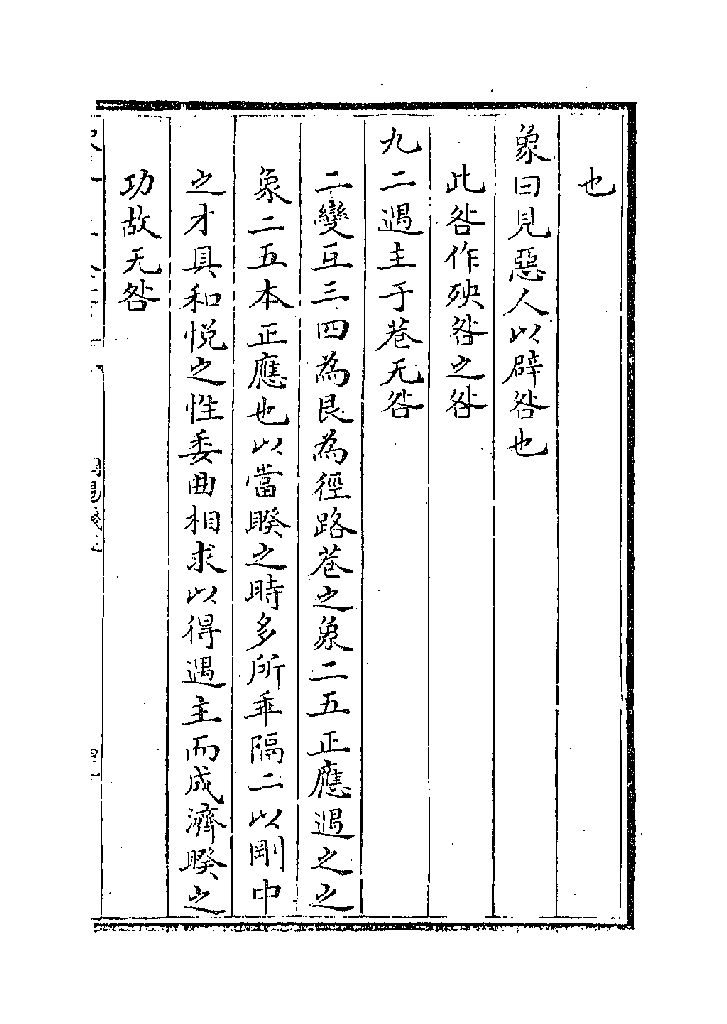 也
象曰見惡人以辟咎也
此咎作殃咎之咎
九二遇主于巷无咎
二變互三四為艮為徑路巷之象二五正應遇之之
象二五本正應也以當睽之時多所乖隔二以剛中
之才具和悅之性委曲相求以得遇主而成濟睽之
功故无咎